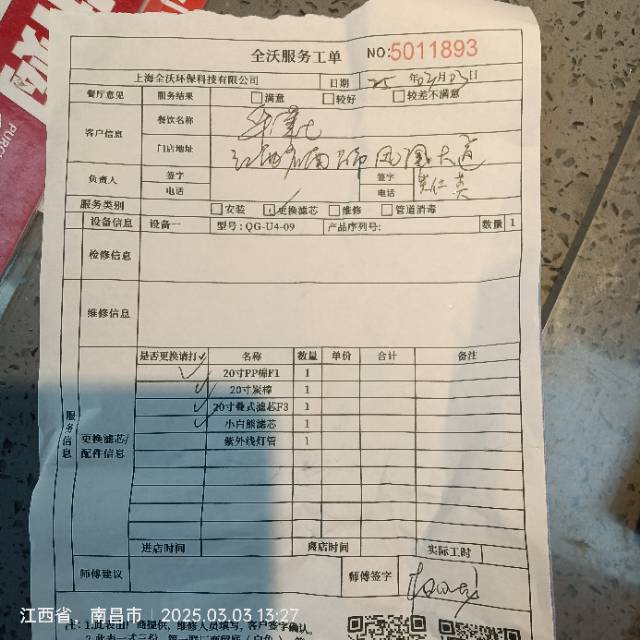 全沃服务工单 NO:5011893
上海全沃环保科技有限公司 日期 25年03月03日
餐厅意见 服务结果 满意 较好 较差不满意
客户信息 餐饮名称
门店地址 江西省南昌市凤凰大道
负责人 签字 签字
电话 电话
服务类别 安装 更换滤芯 维修 管道消毒
设备信息 设备一 型号:QG-U4-09 产品序列号: 数量 1
检修信息
维修信息
服务信息
更换滤芯/配件信息
是否更换请打✓ 名称 数量 单价 合计 备注
✓ 20寸PP棉F1 1
✓ 20寸炭棒 1
✓ 20寸叠式滤芯F3 1
✓ 小白熊滤芯 1
紫外线灯管 1
进店时间 离店时间 实际工时
师傅建议 师傅签字
江西省，南昌市 2025.03.03 13:27
PURC